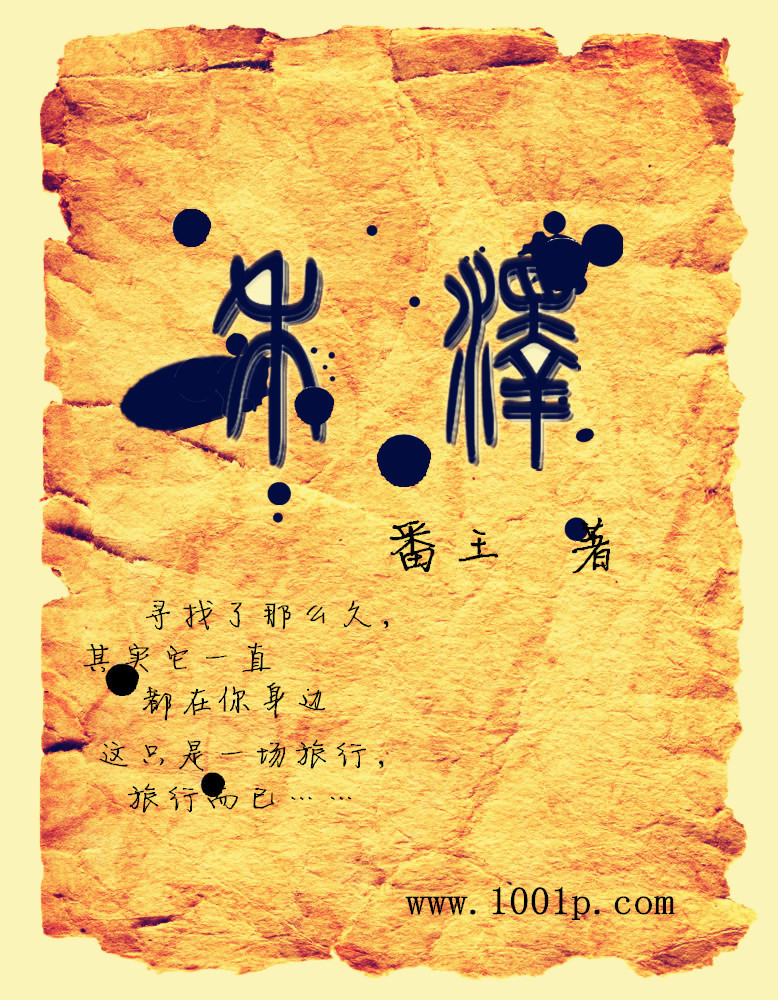 禾 澤
番王 著
寻找了那么久，
其实它一直
都在你身边
这只是一场旅行，
旅行而已……
www.1001p.com